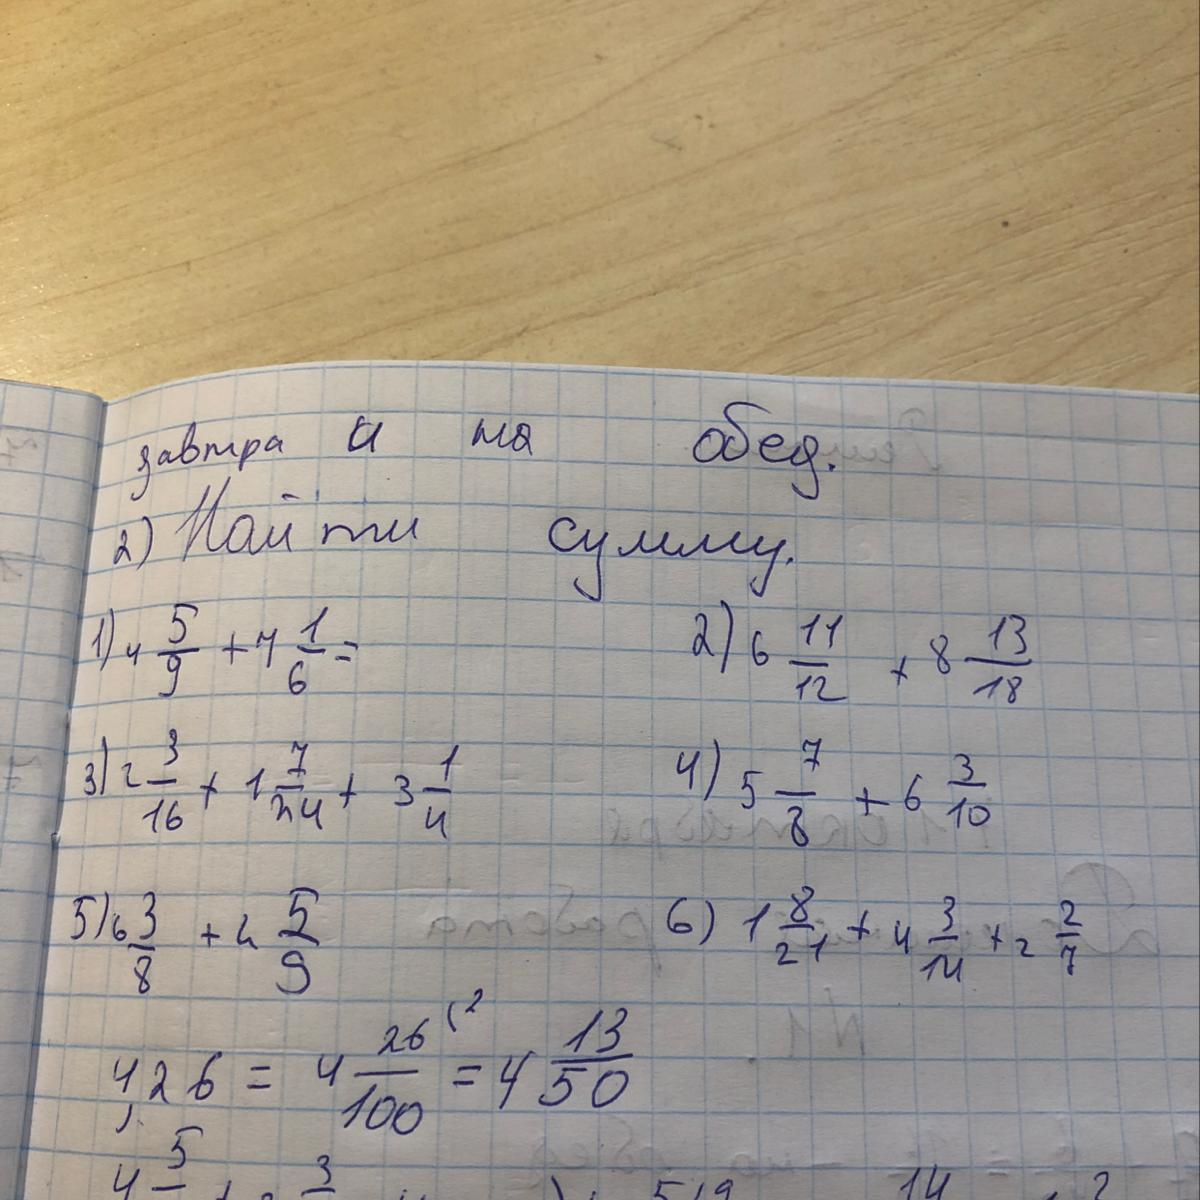 завтра и на обед.
2) Найти сумму.
1) 4 5/9 + 7 1/6 = 2) 6 11/12 + 8 13/18
3) 2 3/16 + 1 7/24 + 3 1/4 4) 5 7/8 + 6 3/10
5) 6 3/8 + 2 5/9 6) 1 8/21 + 4 3/14 + 2 2/7
4,26 = 4 26/100 (2 = 4 13/50